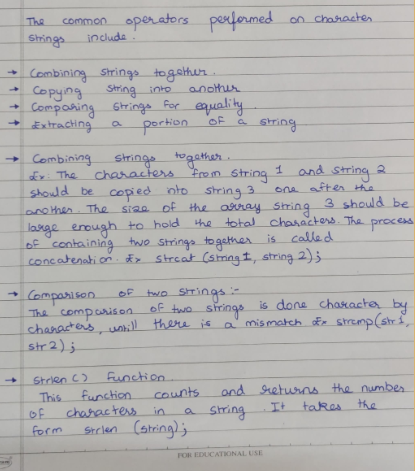 The common operators performed on character
strings include.
→ Combining strings together.
→ Copying string into another
→ Comparing strings for equality.
→ Extracting a portion of a string
→ Combining strings together.
Ex: The characters from string 1 and string 2
should be copied into string 3 one after the
another. The size of the array string 3 should be
large enough to hold the total characters. The process
of containing two strings together is called
concatenation. Ex strcat (string1, string 2);
→ Comparison of two strings :-
The comparison of two strings is done character by
characters, untill there is a mismatch Ex strcmp(str1,
str2);
→ Strlen () Function.
This function counts and returns the number
of characters in a string. It takes the
form strlen (string);
FOR EDUCATIONAL USE